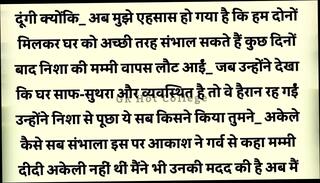 दूंगी क्योंकि_ अब मुझे एहसास हो गया है कि हम दोनों
मिलकर घर को अच्छी तरह संभाल सकते हैं कुछ दिनों
बाद निशा की मम्मी वापस लौट आईं_ जब उन्होंने देखा
कि घर साफ-सुथरा और व्यवस्थित है तो वे हैरान रह गईं
GK Hot College
उन्होंने निशा से पूछा ये सब किसने किया तुमने_ अकेले
कैसे सब संभाला इस पर आकाश ने गर्व से कहा मम्मी
दीदी अकेली नहीं थी मैंने भी उनकी मदद की है अब मैं